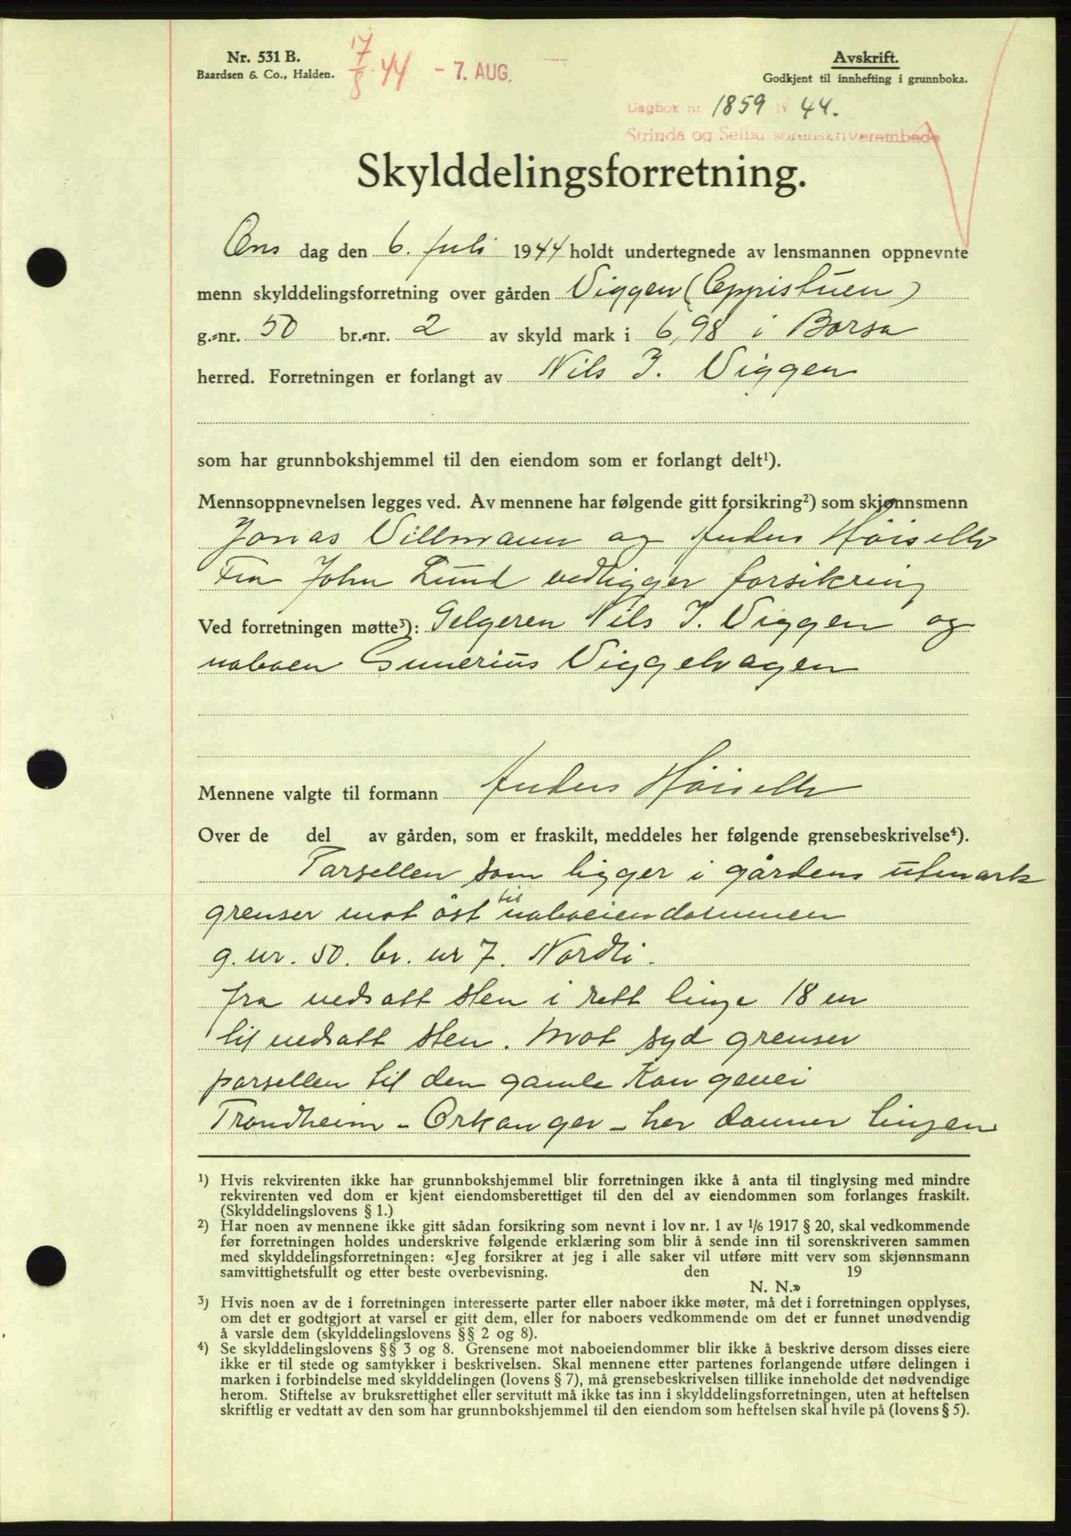 Nr. 531 B.
Baardsen & Co., Halden.
17/8 44
- 7. AUG.
Avskrift.
Godkjent til innhefting i grunnboka.
Dagbok nr. 1859 19 44.
Strinda og Selbu sorenskriverembede
Skylddelingsforretning.
Ons dag den 6. juli 1944 holdt undertegnede av lensmannen oppnevnte
menn skylddelingsforretning over gården Viggen (Oppistuen)
g.-nr. 50 br.-nr. 2 av skyld mark i 6,98 i Børsa
herred. Forretningen er forlangt av Nils J. Viggen
som har grunnbokshjemmel til den eiendom som er forlangt delt¹).
Mennsoppnevnelsen legges ved. Av mennene har følgende gitt forsikring²) som skjønnsmenn
Jonas Villmann og Anders Høiseth
Fra John Lund vedligger forsikring
Ved forretningen møtte³): Selgeren Nils J. Viggen og
naboen Gunerius Viggelvagen
Mennene valgte til formann Anders Høiseth
Over de del av gården, som er fraskilt, meddeles her følgende grensebeskrivelse⁴).
Parsellen som ligger i gårdens utmark
grenser mot øst til naboeiendommen
g. nr. 50. br. nr 7. Nordli.
fra nedsatt sten i rett linje 18 m
til nedsatt sten. Mot syd grenser
parsellen til den gamle Kongevei
Trondheim - Orkanger - her danner linjen
¹) Hvis rekvirenten ikke har grunnbokshjemmel blir forretningen ikke å anta til tinglysing med mindre
rekvirenten ved dom er kjent eiendomsberettiget til den del av eiendommen som forlanges fraskilt.
(Skylddelingslovens § 1.)
²) Har noen av mennene ikke gitt sådan forsikring som nevnt i lov nr. 1 av 1/6 1917 § 20, skal vedkommende
før forretningen holdes underskrive følgende erklæring som blir å sende inn til sorenskriveren sammen
med skylddelingsforretningen: «Jeg forsikrer at jeg i alle saker vil utføre mitt verv som skjønnsmann
samvittighetsfullt og etter beste overbevisning. den 19
N. N.»
³) Hvis noen av de i forretningen interesserte parter eller naboer ikke møter, må det i forretningen opplyses,
om det er godtgjort at varsel er gitt dem, eller for naboers vedkommende om det er funnet unødvendig
å varsle dem (skylddelingslovens §§ 2 og 8).
⁴) Se skylddelingslovens §§ 3 og 8. Grensene mot naboeiendommer blir ikke å beskrive dersom disses eiere
ikke er til stede og samtykker i beskrivelsen. Skal mennene etter partenes forlangende utføre delingen i
marken i forbindelse med skylddelingen (lovens § 7), må grensebeskrivelsen tillike inneholde det nødvendige
herom. Stiftelse av bruksrettighet eller servitutt må ikke tas inn i skylddelingsforretningen, uten at heftelsen
skriftlig er vedtatt av den som har grunnbokshjemmel til den eiendom som heftelsen skal hvile på (lovens § 5).